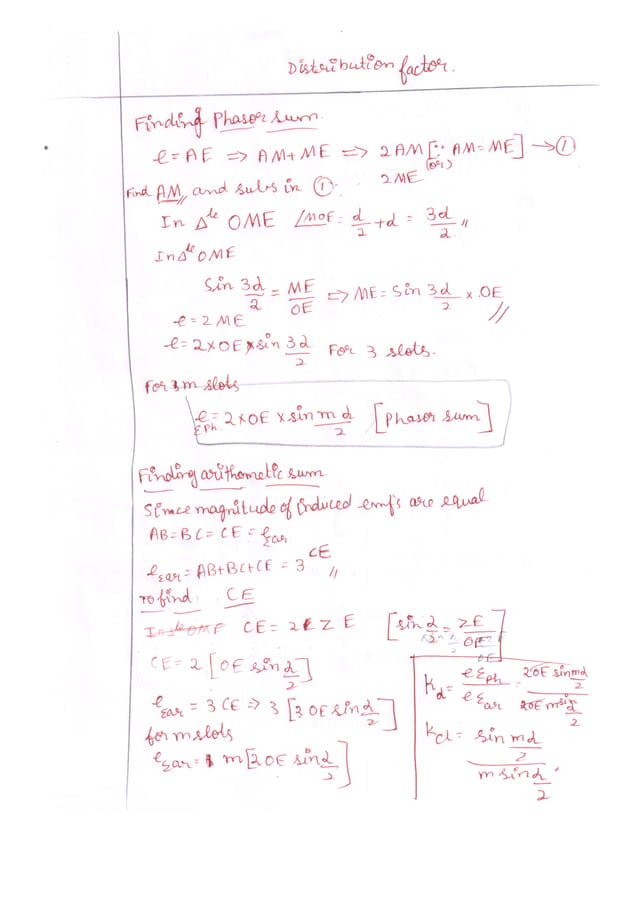 Distribution factor.
Finding Phasor sum.
e = AE => AM+ME => 2AM [∵ AM = ME] → ①
(or)
2ME
Find AM, and subs in ①.
In Δle OME ∠MOE = d/2 + d = 3d/2 //
In Δle OME
Sin 3d/2 = ME/OE => ME = Sin 3d/2 x OE //
e = 2ME
e = 2xOE x sin 3d/2 For 3 slots.
For m slots
eΣph = 2xOE x sin md/2 [Phasor sum]
Finding arithometic sum
Simce magnitude of induced emf's are equal
AB = BC = CE = ξar
eΣar = AB+BC+CE = 3 CE //
To find : CE
In Δle OMF CE = 2 Z E [sin d/2 = ZE/OE]
CE = 2 [OE sin d/2]
eΣar = 3 CE => 3 [2 OE sin d/2]
for m slots
eΣar = m [2 OE sin d/2]
Kd = eΣph / eΣar = 2OE sin md/2 / 2OE m sin d/2
Kd = sin md/2 / m sin d/2